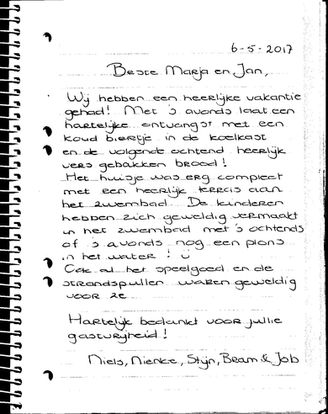 6-5-2017
Beste Marja en Jan,
Wij hebben een heerlijke vakantie
gehad! Met 's avonds laat een
hartelijke ontvangst met een
koud biertje in de koelkast
en de volgende ochtend heerlijk
vers gebakken brood!
Het huisje was erg compleet
met een heerlijk terras aan
het zwembad. De kinderen
hebben zich geweldig vermaakt
in het zwembad met 's ochtends
of 's avonds nog een plons
in het water!
Ook al het speelgoed en de
strandspullen waren geweldig
voor ze.
Hartelijk bedankt voor jullie
gastvrijheid!
Niels, Nienke, Stijn, Bram & Job